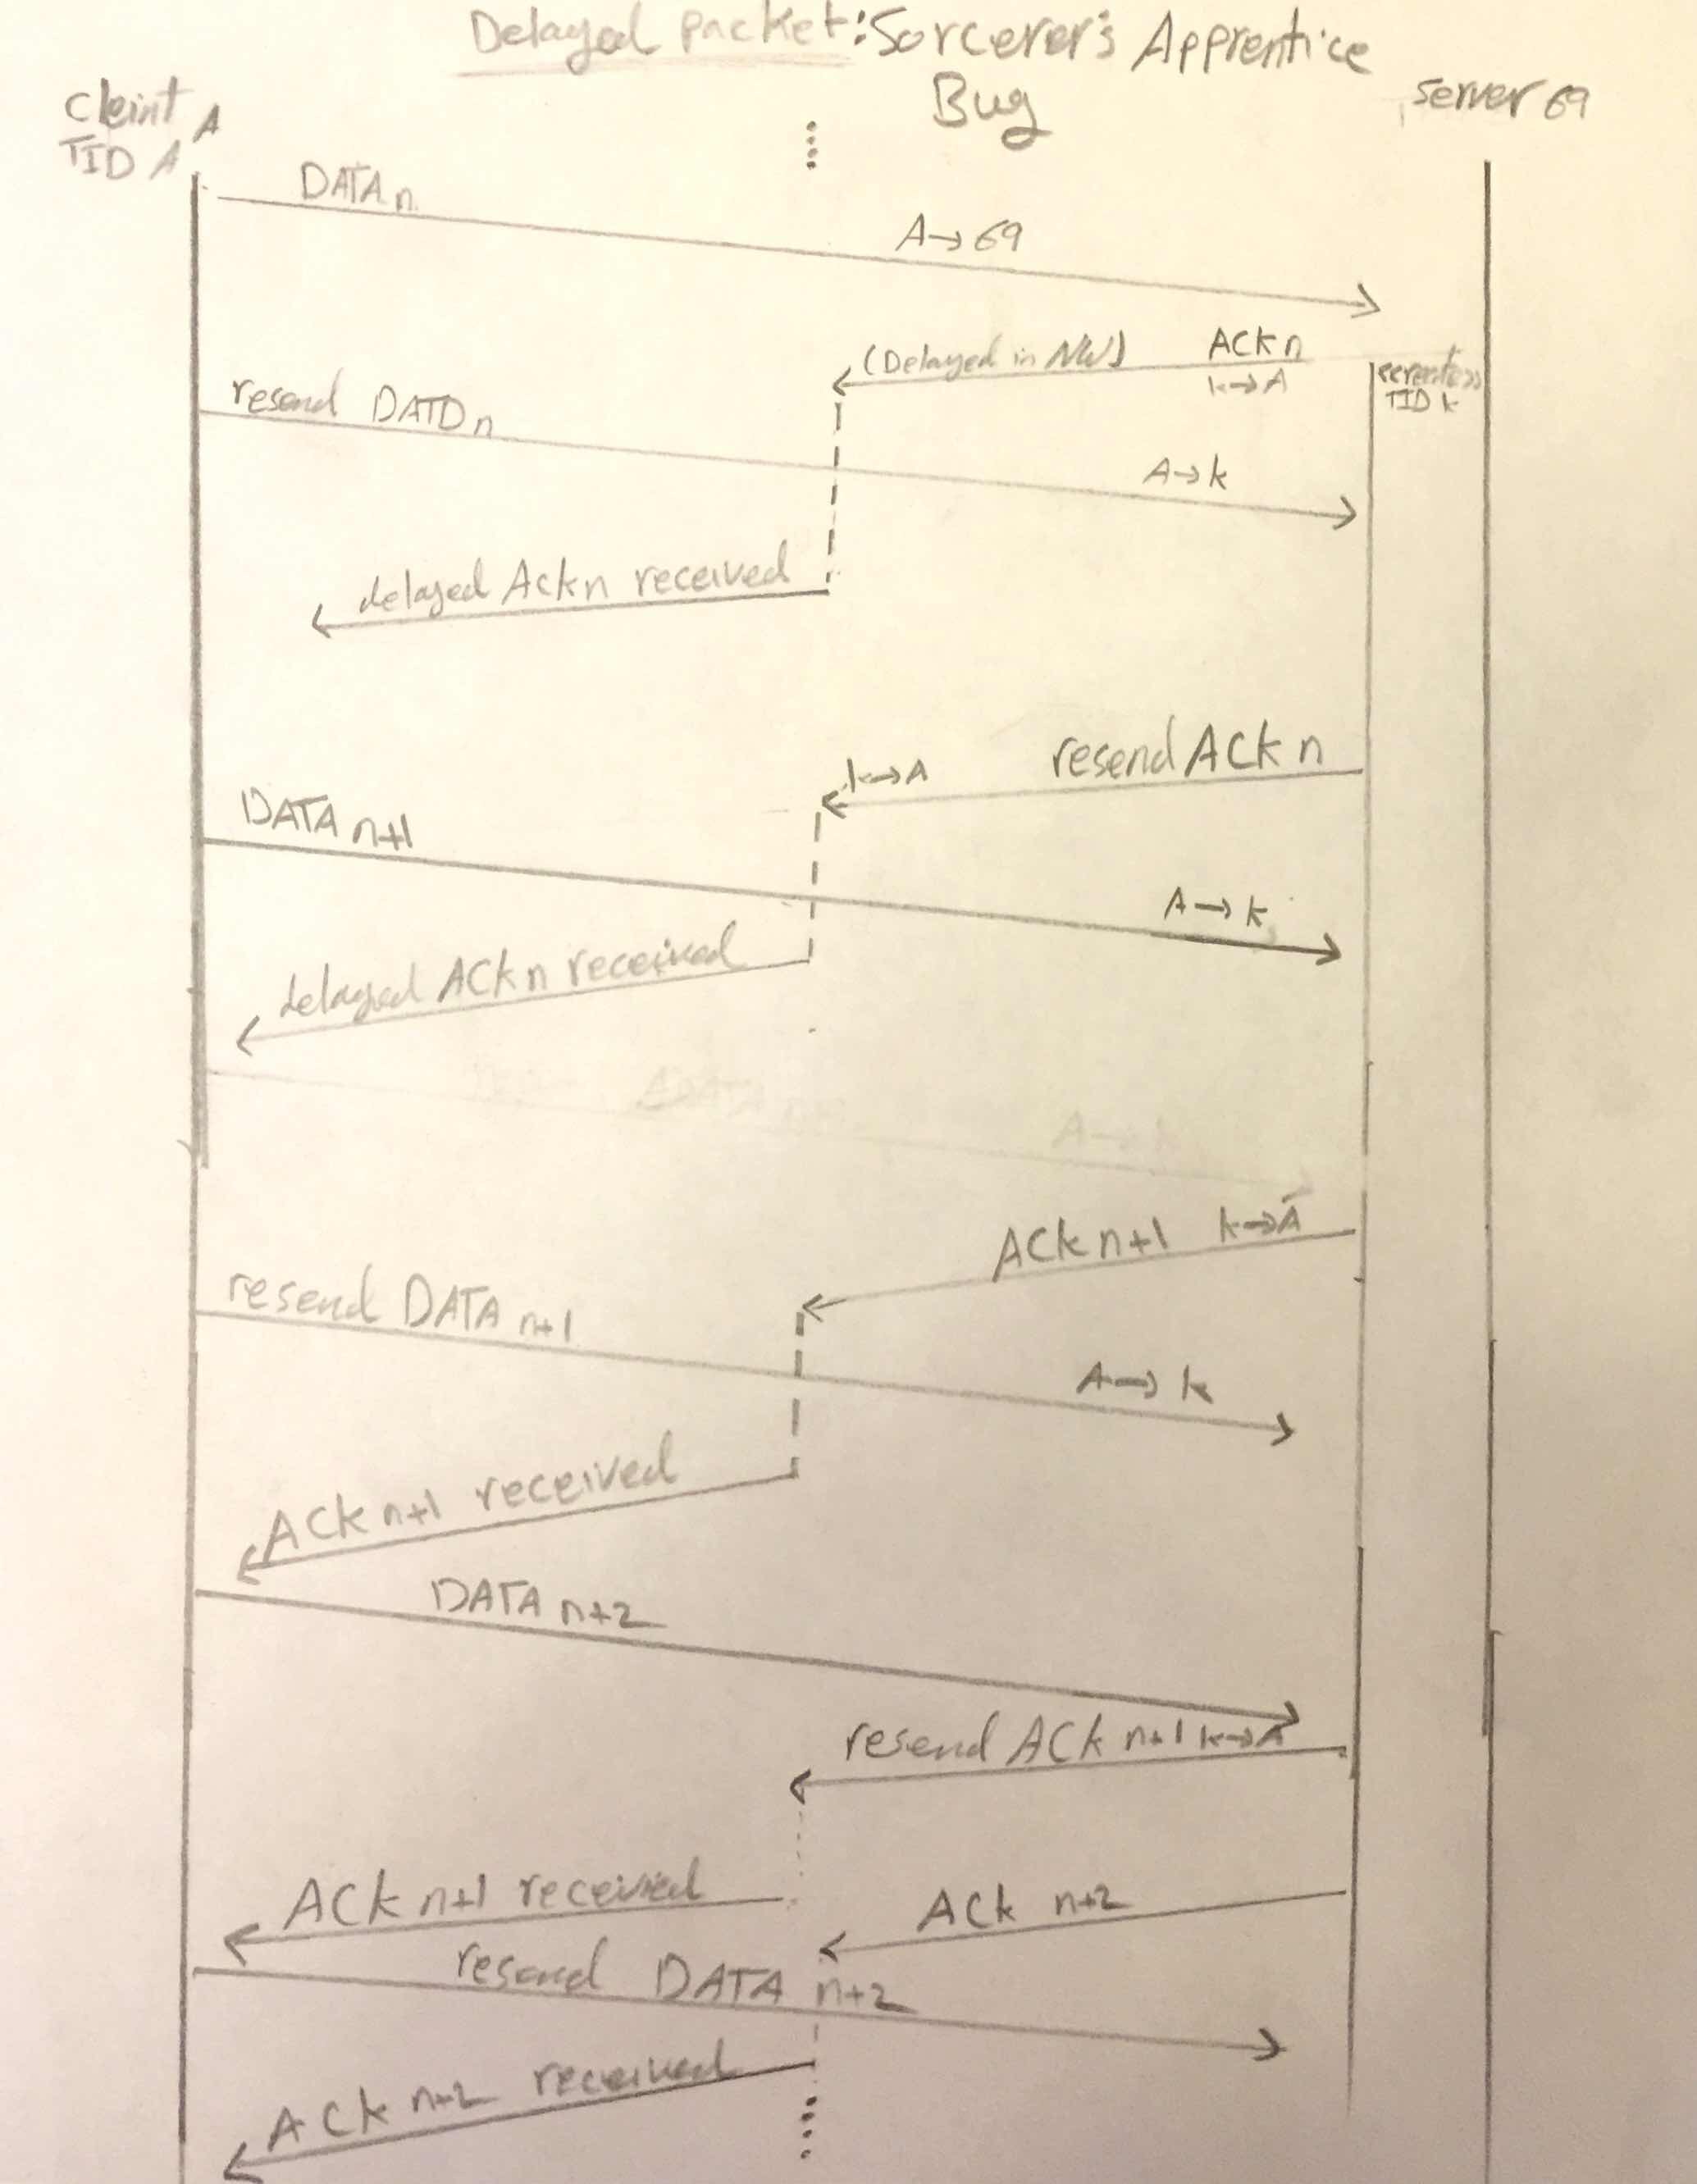 Delayed packet: Sorcerer's Apprentice
Bug
cleint A
TID A
server 69
DATA n
A→69
(Delayed in NW) ACK n
k→A
TID k
resend DATD n
A→k
delayed Ack n received
resend ACK n
k→A
DATA n+1
A→k
delayed ACK n received
ACK n+1 k→A
resend DATA n+1
A→k
ACK n+1 received
DATA n+2
resend ACK n+1 k→A
ACK n+1 received
ACK n+2
resend DATA n+2
ACK n+2 received